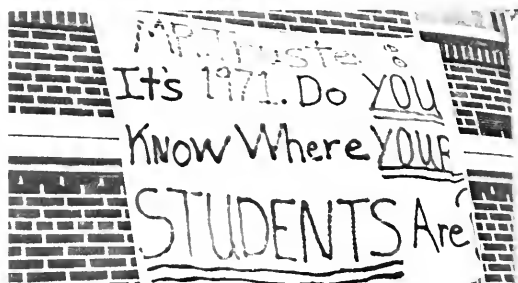 MR. Truste :
It's 1971. Do YOU
KNOW Where YOUR
STUDENTS Are